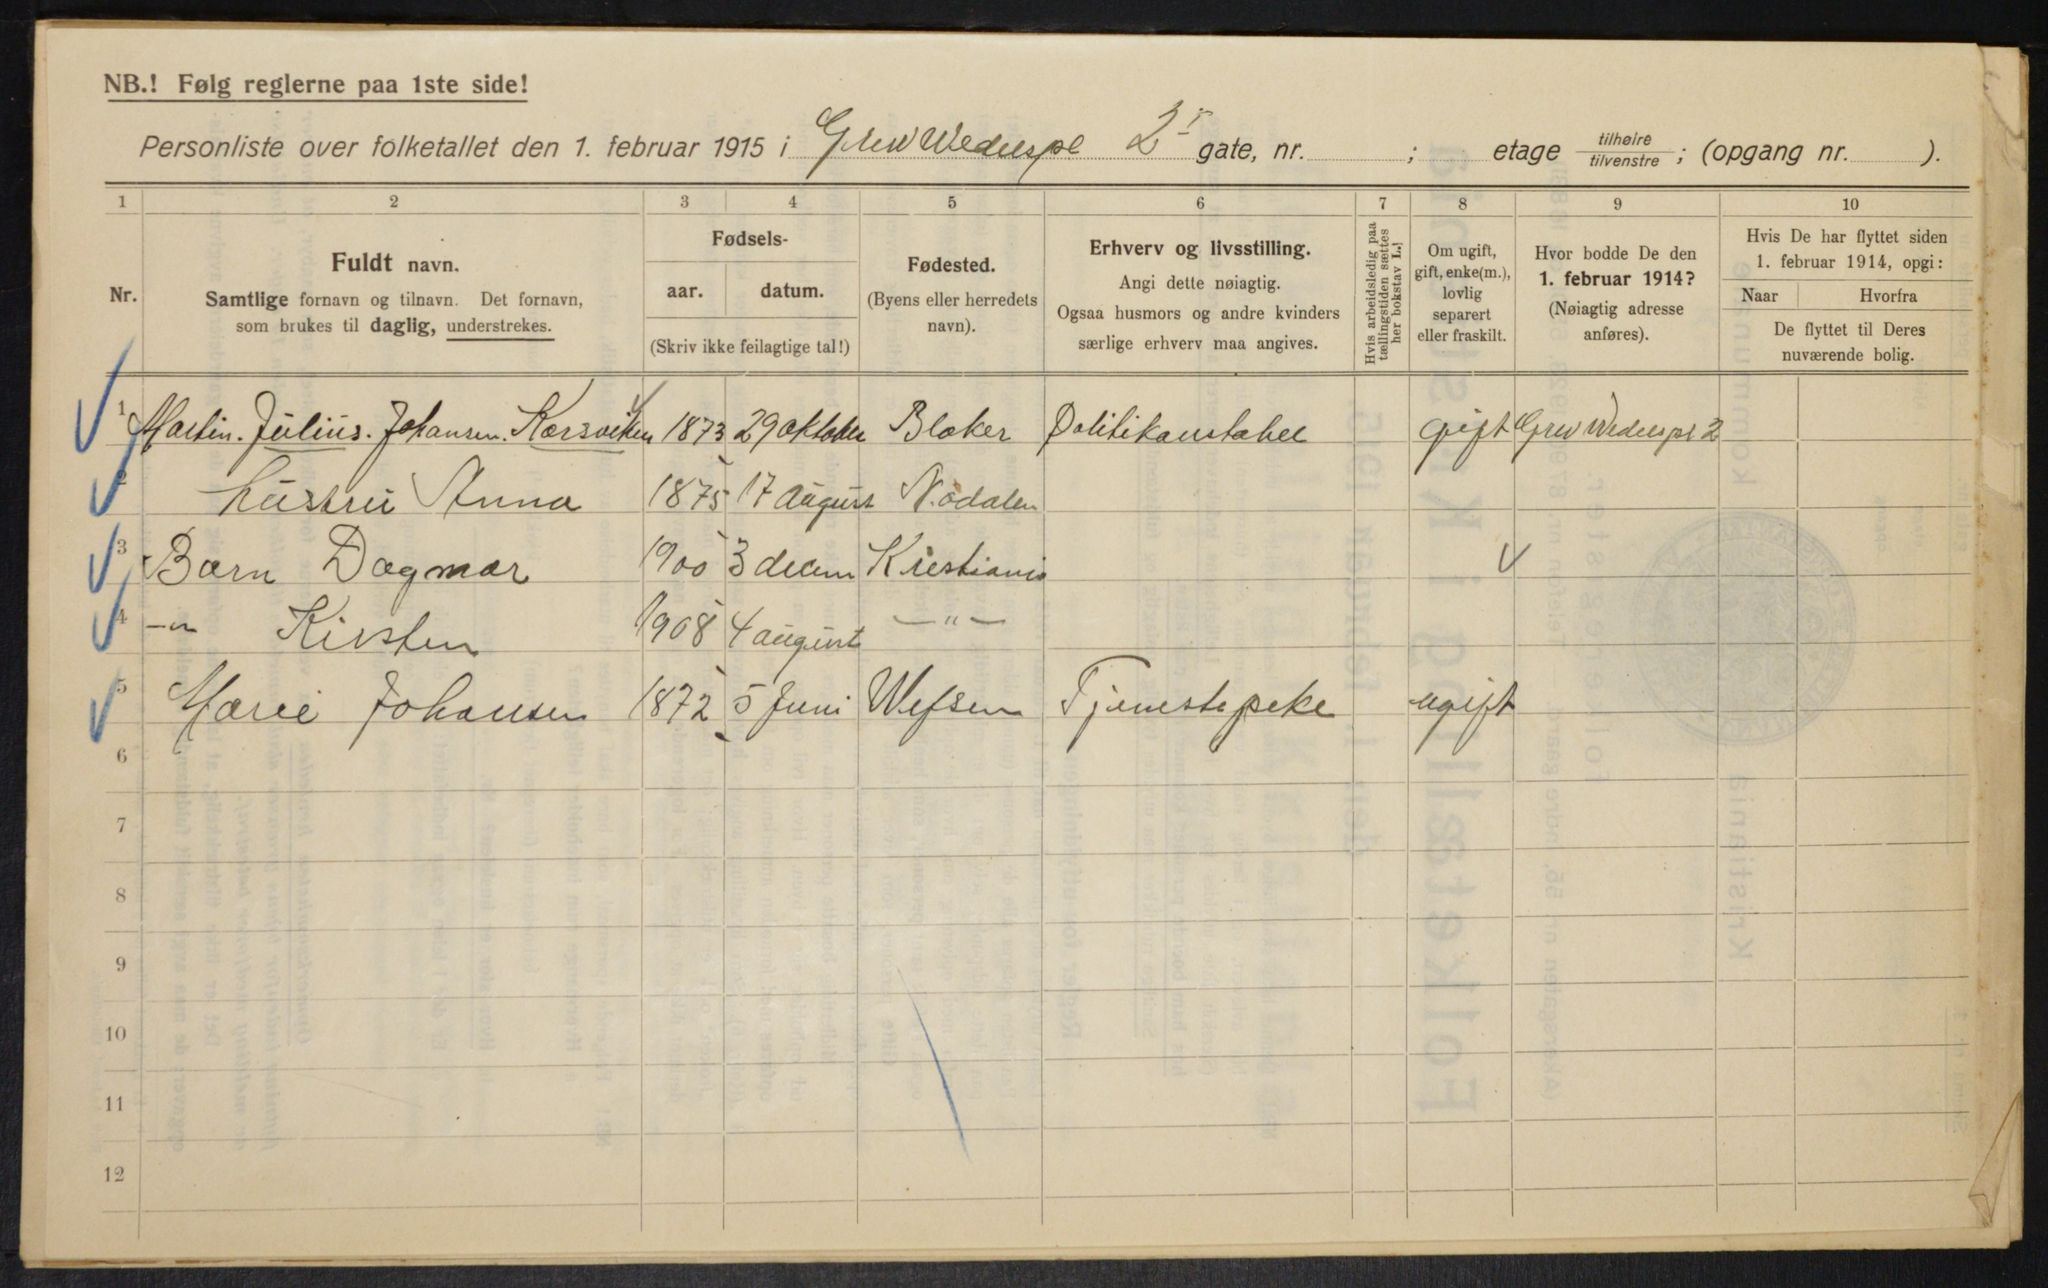 NB.! Følg reglerne paa 1ste side!
Personliste over folketallet den 1. februar 1915 i Grev Wedelspl 2 gate, nr. ; etage tilhøire/tilvenstre; (opgang nr. ).
1 2 3 4 5 6 7 8 9 10
Nr.
Fuldt navn.
Samtlige fornavn og tilnavn. Det fornavn,
som brukes til daglig, understrekes.
Fødsels-
aar. datum.
(Skriv ikke feilagtige tal!)
Fødested.
(Byens eller herredets
navn).
Erhverv og livsstilling.
Angi dette nøiagtig.
Ogsaa husmors og andre kvinders
særlige erhverv maa angives.
Hvis arbeidsledig paa
tællingstiden sættes
her bokstav L.!
Om ugift,
gift, enke(m.),
lovlig
separert
eller fraskilt.
Hvor bodde De den
1. februar 1914?
(Nøiagtig adresse
anføres).
Hvis De har flyttet siden
1. februar 1914, opgi:
Naar Hvorfra
De flyttet til Deres
nuværende bolig.
1 Martin. Julius. Johansen. Korsviken 1873 29 oktober Blaker Politikonstabel gift Grev Wedelspl 2
2 hustru Anna 1875 17 august N. odalen
3 Barn Dagmar 1900 3 decem Kristiania
4 —"— Kirsten 1908 4 august —"—
5 Marie Johansen 1872 5 Juni Vefsen Tjenestepike ugift
6
7
8
9
10
11
12